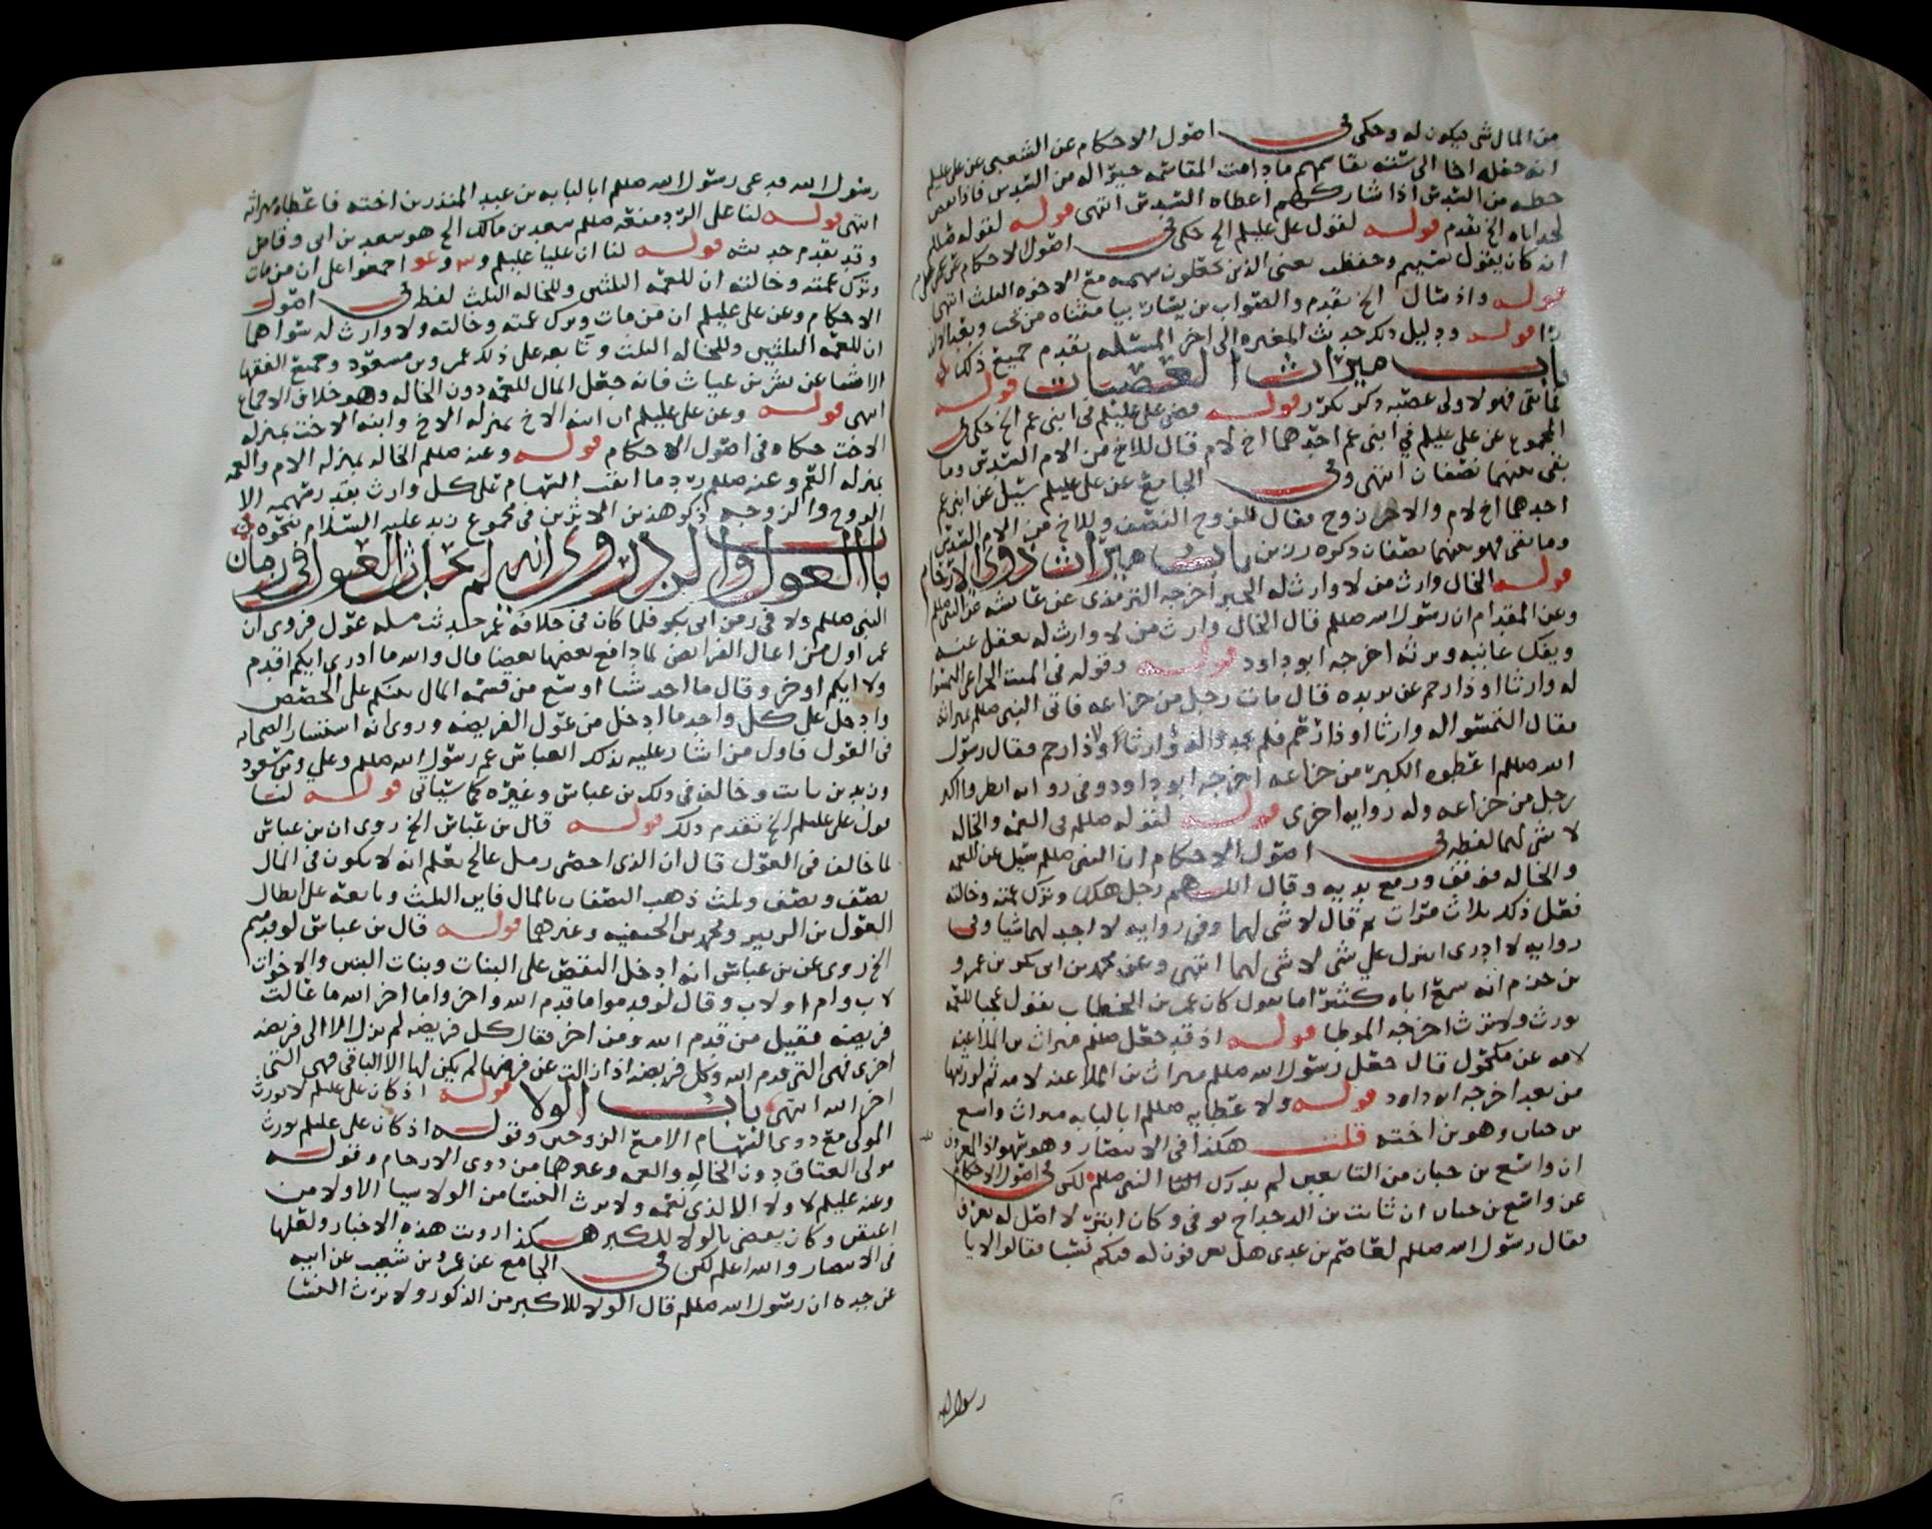 من المال شي فيكون له وحكى في اصول الاحكام عن الشعبي عن علي عليلم
انه جعله اخا الى ستة يقاسمهم ما دامت المقاسمة خيرا له من السدس فاذا نقص
حظه من السدس اذا شاركهم اعطاه السدس انتهى قوله لقوله صللم
الخ تقدم قوله لقول علي عليلم الخ حكى في اصول الاحكام عن علي عليلم
انه كان يقول يعني الذين يجعلون سهمه مع الاخوة الثلث انتهى
قوله واذ سأل الخ تقدم والصواب بن يسار
قوله ودليل ذكر حديث المغيرة الى اخر المسئلة تقدم جميع ذلك
باب ميراث العصبات قوله
فما بقي فهو لاولى عصبة ذكر تكرر قوله قضى علي عليلم في ابني عم الخ حكى في
المجموع عن علي عليلم في ابني عم احدهما اخ لام قال للاخ من الام السدس وما
بقي بينهما نصفان انتهى وفي الجامع عن علي عليلم سئل عن ابني عم
احدهما اخ لام والاخر زوج فقال للزوج النصف وللاخ من الام السدس
وما بقي فهو بينهما نصفان ذكره رزين باب ميراث ذوي الارحام
قوله الخال وارث من لا وارث له الخبر اخرجه الترمذي عن عائشة عن النبي صللم
وعن المقدام ان رسول الله صللم قال الخال وارث من لا وارث له يعقل عنه
ويفك عانيه ويرثه اخرجه ابو داود قوله وقوله في الميت الخزاعي التمسوا
له وارثا او ذا رحم عن بريده قال مات رجل من خزاعه فاتى النبي صللم بميراثه
فقال التمسوا له وارثا او ذا رحم فلم يجدوا له وارثا ولا ذا رحم فقال رسول
الله صللم اعطوه الكبر من خزاعه اخرجه ابو داود وفي رواية انظروا اكبر
رجل من خزاعه وله رواية اخرى قوله لقوله صللم في العمة والخالة
لا شي لهما لفظه في اصول الاحكام ان النبي صللم سئل عن العمة
والخالة فوقف ورفع يديه وقال اللهم رجل هلك وترك عمته وخالته
فعل ذلك ثلاث مرات ثم قال لا شي لهما وفي رواية لا اجد لهما شيا وفي
رواية لا ادرى انزل علي شي لا شي لهما انتهى وعن محمد بن ابي بكر بن عمرو
بن حزم انه سمع اباه كثيرا ما يقول كان عمر بن الخطاب يقول عجبا للعمة
تورث ولا ترث اخرجه الموطا قوله اذ قد جعل صللم ميراث بن الملاعنة
لامه عن مكحول قال جعل رسول الله صللم ميراث بن الملاعنه لامه ثم لورثتها
من بعد اخرجه ابو داود قوله ولاعطايه صللم ابا لبابه ميراث واسع
بن حبان وهو بن اخته قلت هكذا في الانتصار وهو سهو اذ المعروف
ان واسع بن حبان من التابعين لم يدرك النبي صللم لكن في اصول الاحكام
عن واسع بن حبان ان ثابت بن الدحداح توفي وكان اتيا لا اصل له يعرف
فقال رسول الله صللم لعاصم بن عدى هل تعرفون له فيكم نسبا فقالوا لا يا
رسول الله
رسول الله فدعى رسول الله صللم ابا لبابه بن عبد المنذر بن اخته فاعطاه ميراثه
انتهى قوله لنا على الرد منعه صللم سعد بن مالك الخ هو سعد بن ابي وقاص
وقد تقدم حديثه قوله لنا ان عليا عليلم و وعو اجمعوا على ان من مات
وترك عمته وخالته ان للعمه الثلثين وللخاله الثلث لفظه في اصول
الاحكام وعن علي عليلم ان من مات وترك عمته وخالته ولا وارث له سواهما
ان للعمه الثلثين وللخاله الثلث وتابعه على ذلك عمر وبن مسعود وجميع الفقها
الا شيا عن بشر بن غياث فانه جعل المال للعمه دون الخاله وهو خلاف الاجماع
انتهى قوله وعن علي عليلم ان ابنه الاخ بمنزله الاخ وابنه الاخت بمنزله
الاخت حكاه في اصول الاحكام قوله وعنه صللم الخاله بمنزله الام والعمه
بمنزله العم وعنه صللم رد ما ابقت السهام على كل وارث بقدر سهمه الا
الزوج والزوجه ذكر هذين الاثرين في مجموع زيد عليه السلام نحوه
باب العول والرد روى انه لم يحدث العول في زمان
النبي صللم ولا في زمن ابي بكر فلما كان في خلافة عمر حدثت مسله عول فروى ان
عمر اول من اعال الفرائض لما دافع بعضها بعضا قال والله ما ادرى ايكم اقدم
ولا ايكم اوخر وقال ما اجد شيا اوسع من قسمة المال بينكم على الحصص
وادخل على كل واحد ما ادخل من عول الفريضه وروى انه استشار الصحابه
في العول فاول من اشار عليه بذلك العباس عم رسول الله صللم وعلي وبن مسعود
وزيد بن ثابت وخالف في ذلك بن عباس وغيره كما سياتي قوله لنا
قول علي عليلم الخ تقدم ذلك قوله قال بن عباس الخ روى ان بن عباس
لما خالف في العول قال ان الذى احصى رمل عالج يعلم انه لا يكون في المال
نصف ونصف وثلث ذهب النصفان بالمال فاين الثلث وتابعه على ابطال
العول بن الزبير ومحمد بن الحنفيه وغيرهما قوله قال بن عباس لو قدم
الخ روى عن بن عباس انه ادخل النقص على البنات وبنات الابن والاخوات
لاب وام او لاب وقال لو قدموا ما قدم الله واخروا ما اخر الله ما عالت
فريضه فقيل من قدم الله ومن اخر فقال كل فريضه لم تزل الا الى فريضه
اخرى فهي التي قدم الله وكل فريضه اذا زالت عن فرضها لم يكن لها الا الباقي فهي التي
اخر الله انتهى باب الولا قوله اذ كان علي عليلم لا يورث
المولى مع ذوى السهام الا مع الزوجين وقوله اذ كان علي عليلم يورث
مولى العتاق دون الخاله والعمه وغيرهما من ذوى الارحام وقوله
وعنه عليلم لا ولا الا لذى نعمه ولا يرث النسا من الولا شيا الا ولا من
اعتقن وكان يقضي بالولا للكبر هكذا روت هذه الاخبار ولعلها
في الانتصار والله اعلم لكن في الجامع عن عمرو بن شعيب عن ابيه
عن جده ان رسول الله صللم قال الولا للاكبر من الذكور ولا يرث النسا